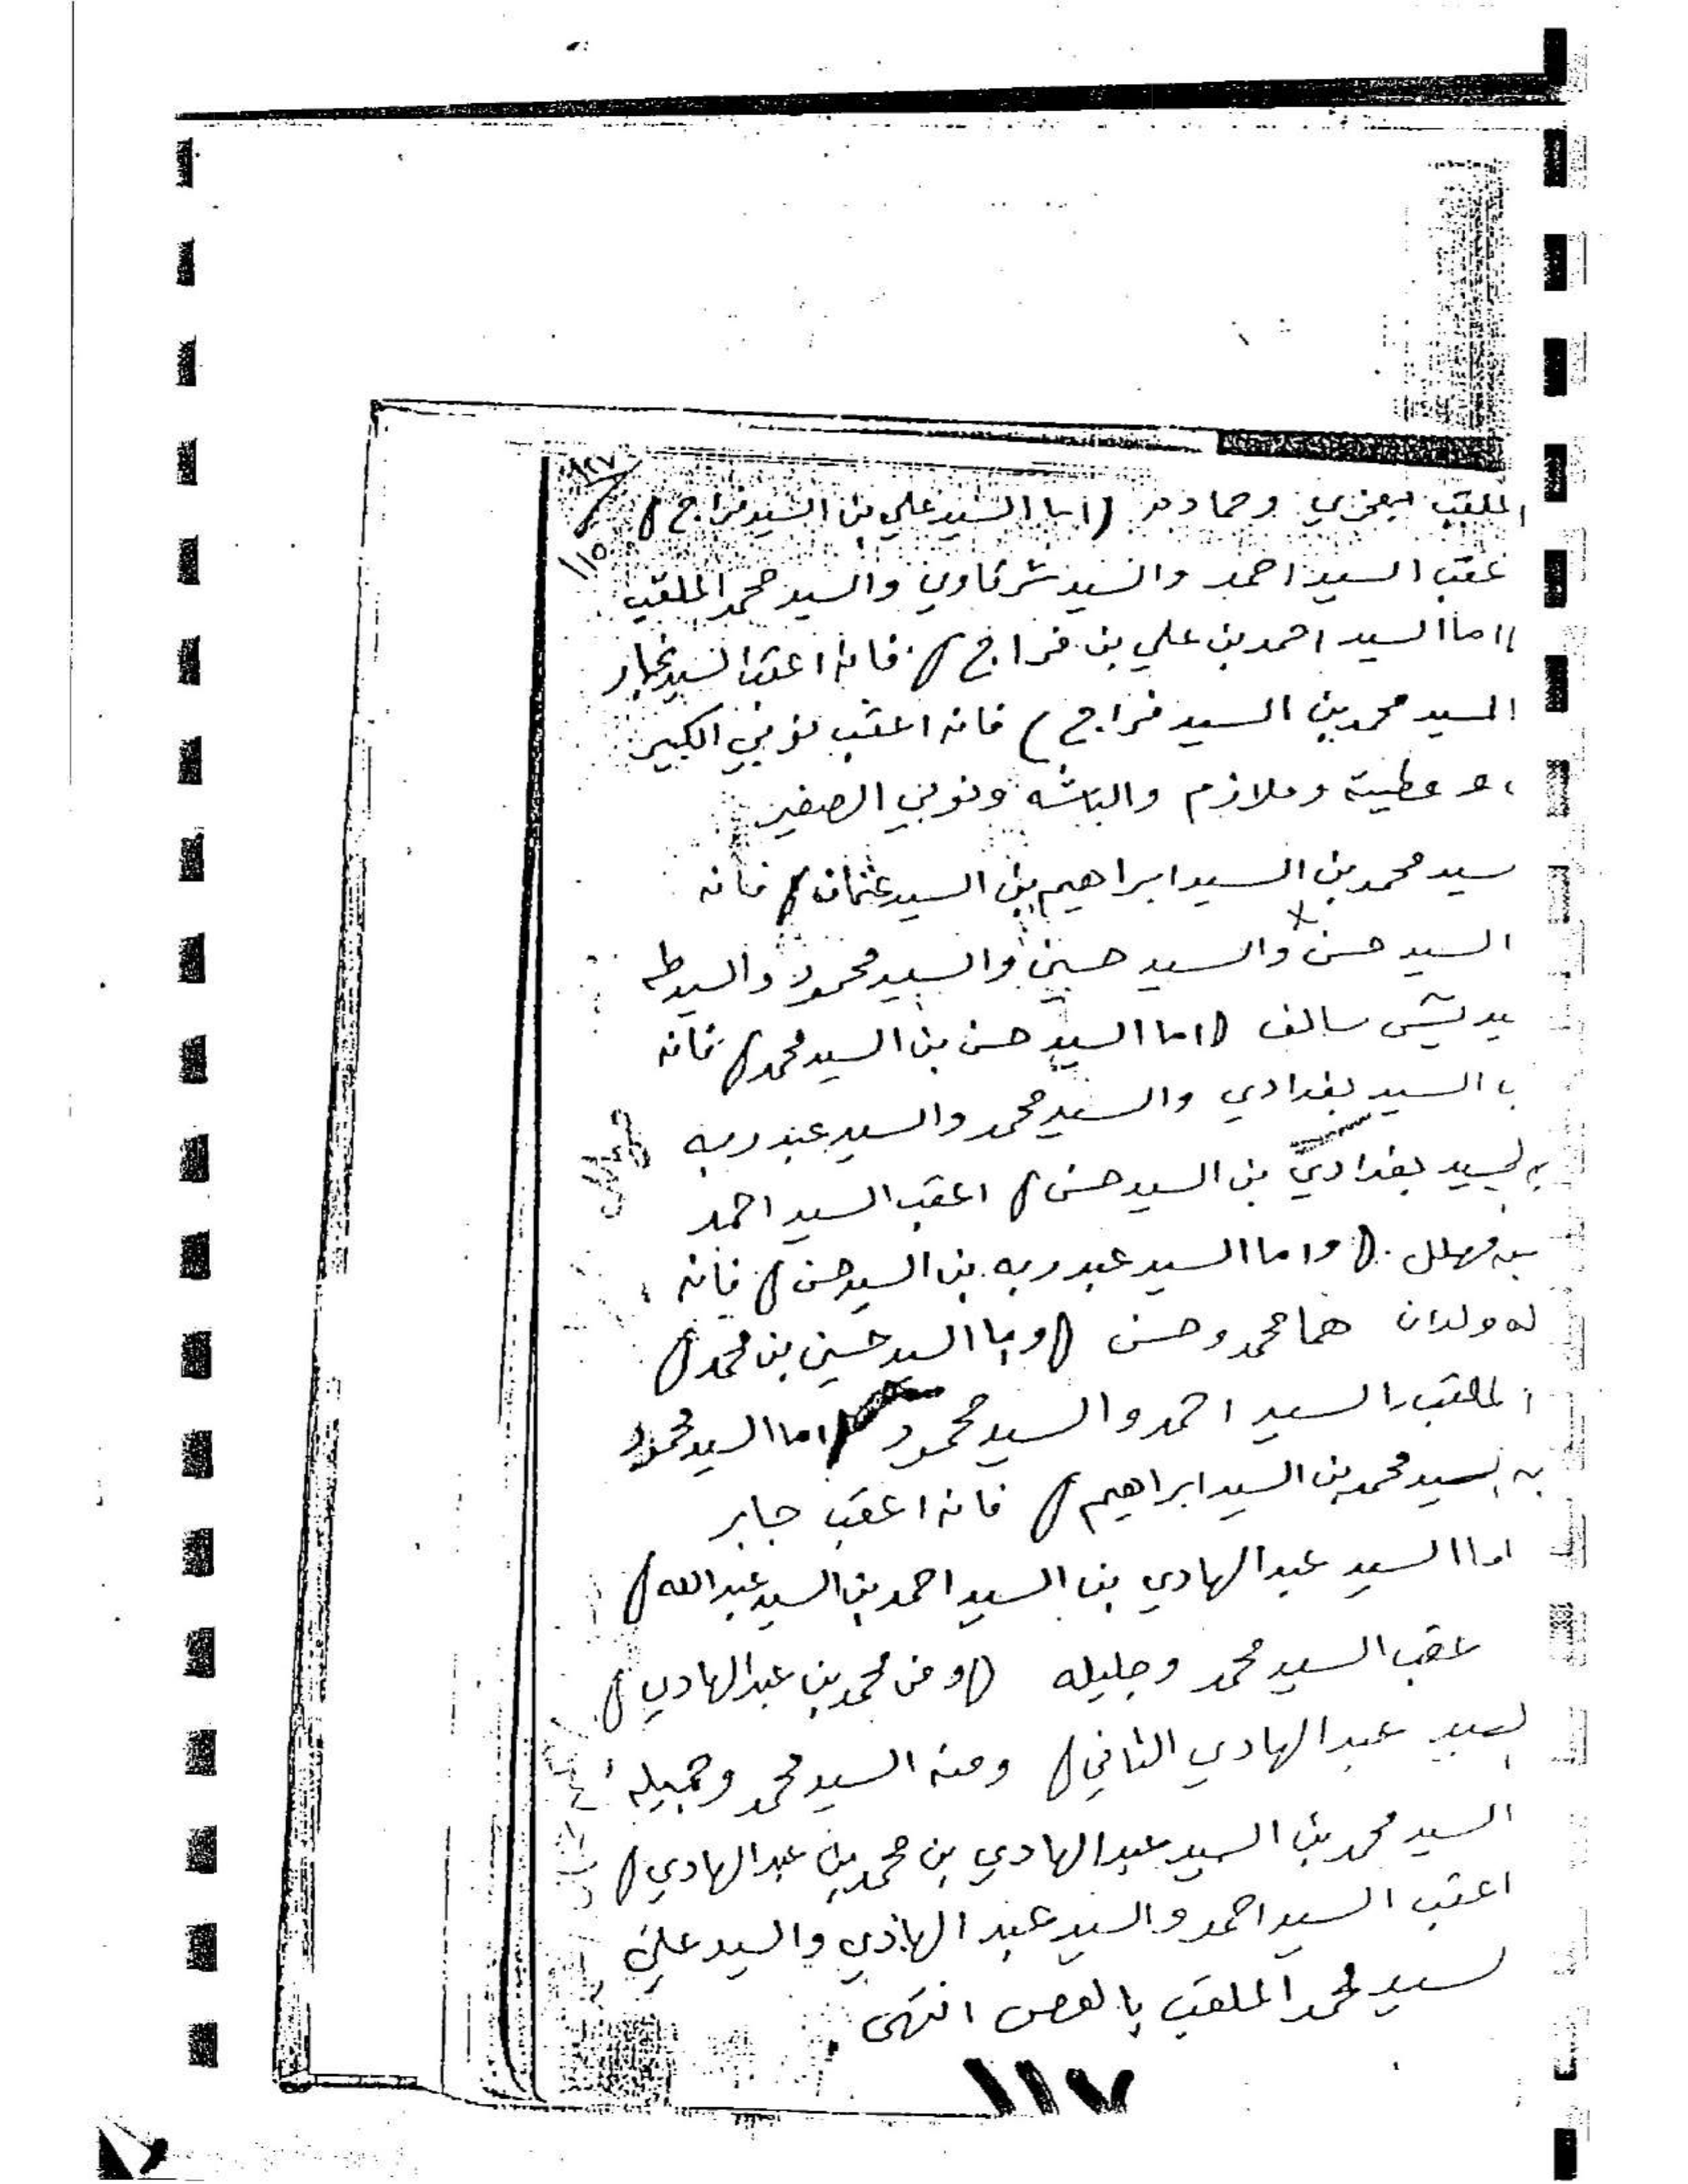 الملقب وحماده (اما السيد علي بن السيد فراج)
عقب السيد احمد والسيد شرقاوي والسيد محمد الملقب
اما السيد احمد بن علي بن فراج) فانه اعقب السيد
السيد محمد بن السيد فراج) فانه اعقب نوبي الكبير
وعطية وملازم والباشه ونوبي الصغير
سيد محمد بن السيد ابراهيم بن السيد عثمان) فانه
السيد حسن والسيد حسين والسيد محمود والسيد طه
يد يتيش سالف (اما السيد حسن بن السيد محمد) فانه
ب السيد بغدادي والسيد محمد والسيد عبد ربه
لسيد بغدادي بن السيد حسن) اعقب السيد احمد
مهلل. (واما السيد عبد ربه بن السيد حسن) فانه
له ولدان هما محمد وحسن (واما السيد حسين بن محمد)
السيد احمد والسيد محمود اما السيد محمود
بسيد محمد بن السيد ابراهيم) فانه اعقب جابر
اما السيد عبد الهادي بن السيد احمد بن السيد عبد الله)
عقب السيد محمد وجليله (ومن محمد بن عبد الهادي)
لسيد عبد الهادي الثاني) ومنه السيد محمد وجميله
السيد محمد بن السيد عبد الهادي بن محمد بن عبد الهادي)
اعقب السيد احمد والسيد عبد الهادي والسيد علي
لسيد محمد الملقب بالعص انتهى.
١١٧